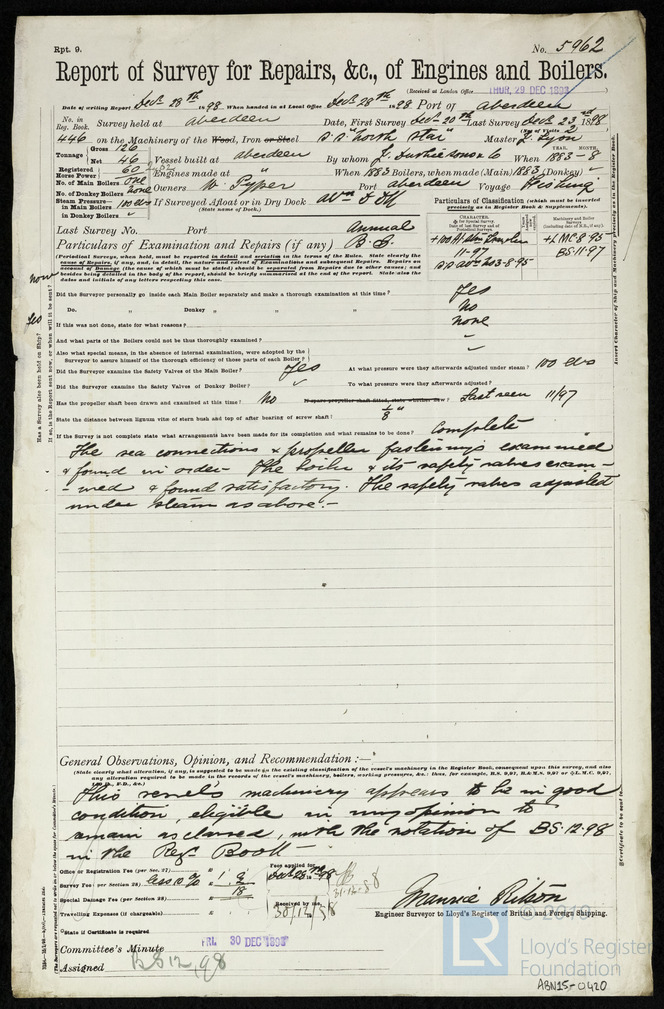 Rpt. 9.
No. 5962
Report of Survey for Repairs, &c., of Engines and Boilers.
(Received at London Office THUR. 29 DEC 1898
Date of writing Report Dec 28th 1898. When handed in at Local Office Dec 28th 1898 Port of Aberdeen
No. in Reg. Book. Survey held at Aberdeen Date, First Survey Dec 20th Last Survey Dec 23rd 1898
(No. of Visits 2)
446 on the Machinery of the Wood, Iron or Steel S.S. "North Star" Master J. Lyon
Tonnage Gross 126
Net 46 Vessel built at Aberdeen By whom J. Duthie Sons & Co When 1883-8
YEAR. MONTH.
Registered Horse Power 60 Engines made at " When 1883 Boilers, when made (Main) 1883 (Donkey) "
No. of Main Boilers One
No. of Donkey Boilers None Owners W. Pyper Port Aberdeen Voyage Fishing
Steam Pressure in Main Boilers 100 lbs If Surveyed Afloat or in Dry Dock
in Donkey Boilers "
(State name of Dock.)
Particulars of Classification (which must be inserted precisely as in Register Book & Supplements).
Last Survey No. Port Annual
Particulars of Examination and Repairs (if any) B.S.
+100A1
11-97
+LMC 8.95
BS.11.97
(Periodical Surveys, when held, must be reported in detail and seriatim in the terms of the Rules. State clearly the
cause of Repairs, if any, and, in detail, the nature and extent of Examinations and subsequent Repairs. Repairs on
account of Damage (the cause of which must be stated) should be separated from Repairs due to other causes; and
besides being detailed in the body of the report, should be briefly summarized at the end of the report. State also the
dates and initials of any letters respecting this case.
Did the Surveyor personally go inside each Main Boiler separately and make a thorough examination at this time? Yes
Do. " Donkey " " " No
If this was not done, state for what reasons? None
And what parts of the Boilers could not be thus thoroughly examined? "
Also what special means, in the absence of internal examination, were adopted by the
Surveyor to assure himself of the thorough efficiency of those parts of each Boiler? "
Did the Surveyor examine the Safety Valves of the Main Boiler? Yes At what pressure were they afterwards adjusted under steam? 100 lbs
Did the Surveyor examine the Safety Valves of Donkey Boiler? " To what pressure were they afterwards adjusted? "
Has the propeller shaft been drawn and examined at this time? No Last seen 11/97
State the distance between lignum vitæ of stern bush and top of after bearing of screw shaft? 1/8"
If the Survey is not complete state what arrangements have been made for its completion and what remains to be done? Complete
The sea connections & propeller fastenings examined
& found in order - The boiler & its safety valves exam-
-ined & found satisfactory. The safety valves adjusted
under steam as above.-
General Observations, Opinion, and Recommendation:—
(State clearly what alteration, if any, is suggested to be made in the existing classification of the vessel's machinery in the Register Book, consequent upon this survey, and also
any alteration required to be made in the records of the vessel's machinery, boilers, working pressures, &c.: thus, for example, B.S. 9,97, B.&M.S. 9,97 or L.M.C. 9,97,
F.D., &c.)
This vessel's machinery appears to be in good
condition, eligible in my opinion to
remain as classed, with the notation of BS.12.98
in the Regr. Book
Office or Registration Fee (per Sec. 27) £ Fees applied for
Survey Fee (per Section 28) £ 1 Dec 28th 98
Special Damage Fee (per Section 28) £ Received by me,
Travelling Expenses (if chargeable) £ 30/12/98
31-12-98
Maurice Ritson
Engineer Surveyor to Lloyd's Register of British and Foreign Shipping.
State if Certificate is required
Committee's Minute FRI. 30 DEC 1898
Assigned BS 12,98
© 2019
LR
Lloyd's Register
Foundation
ABN15-0420